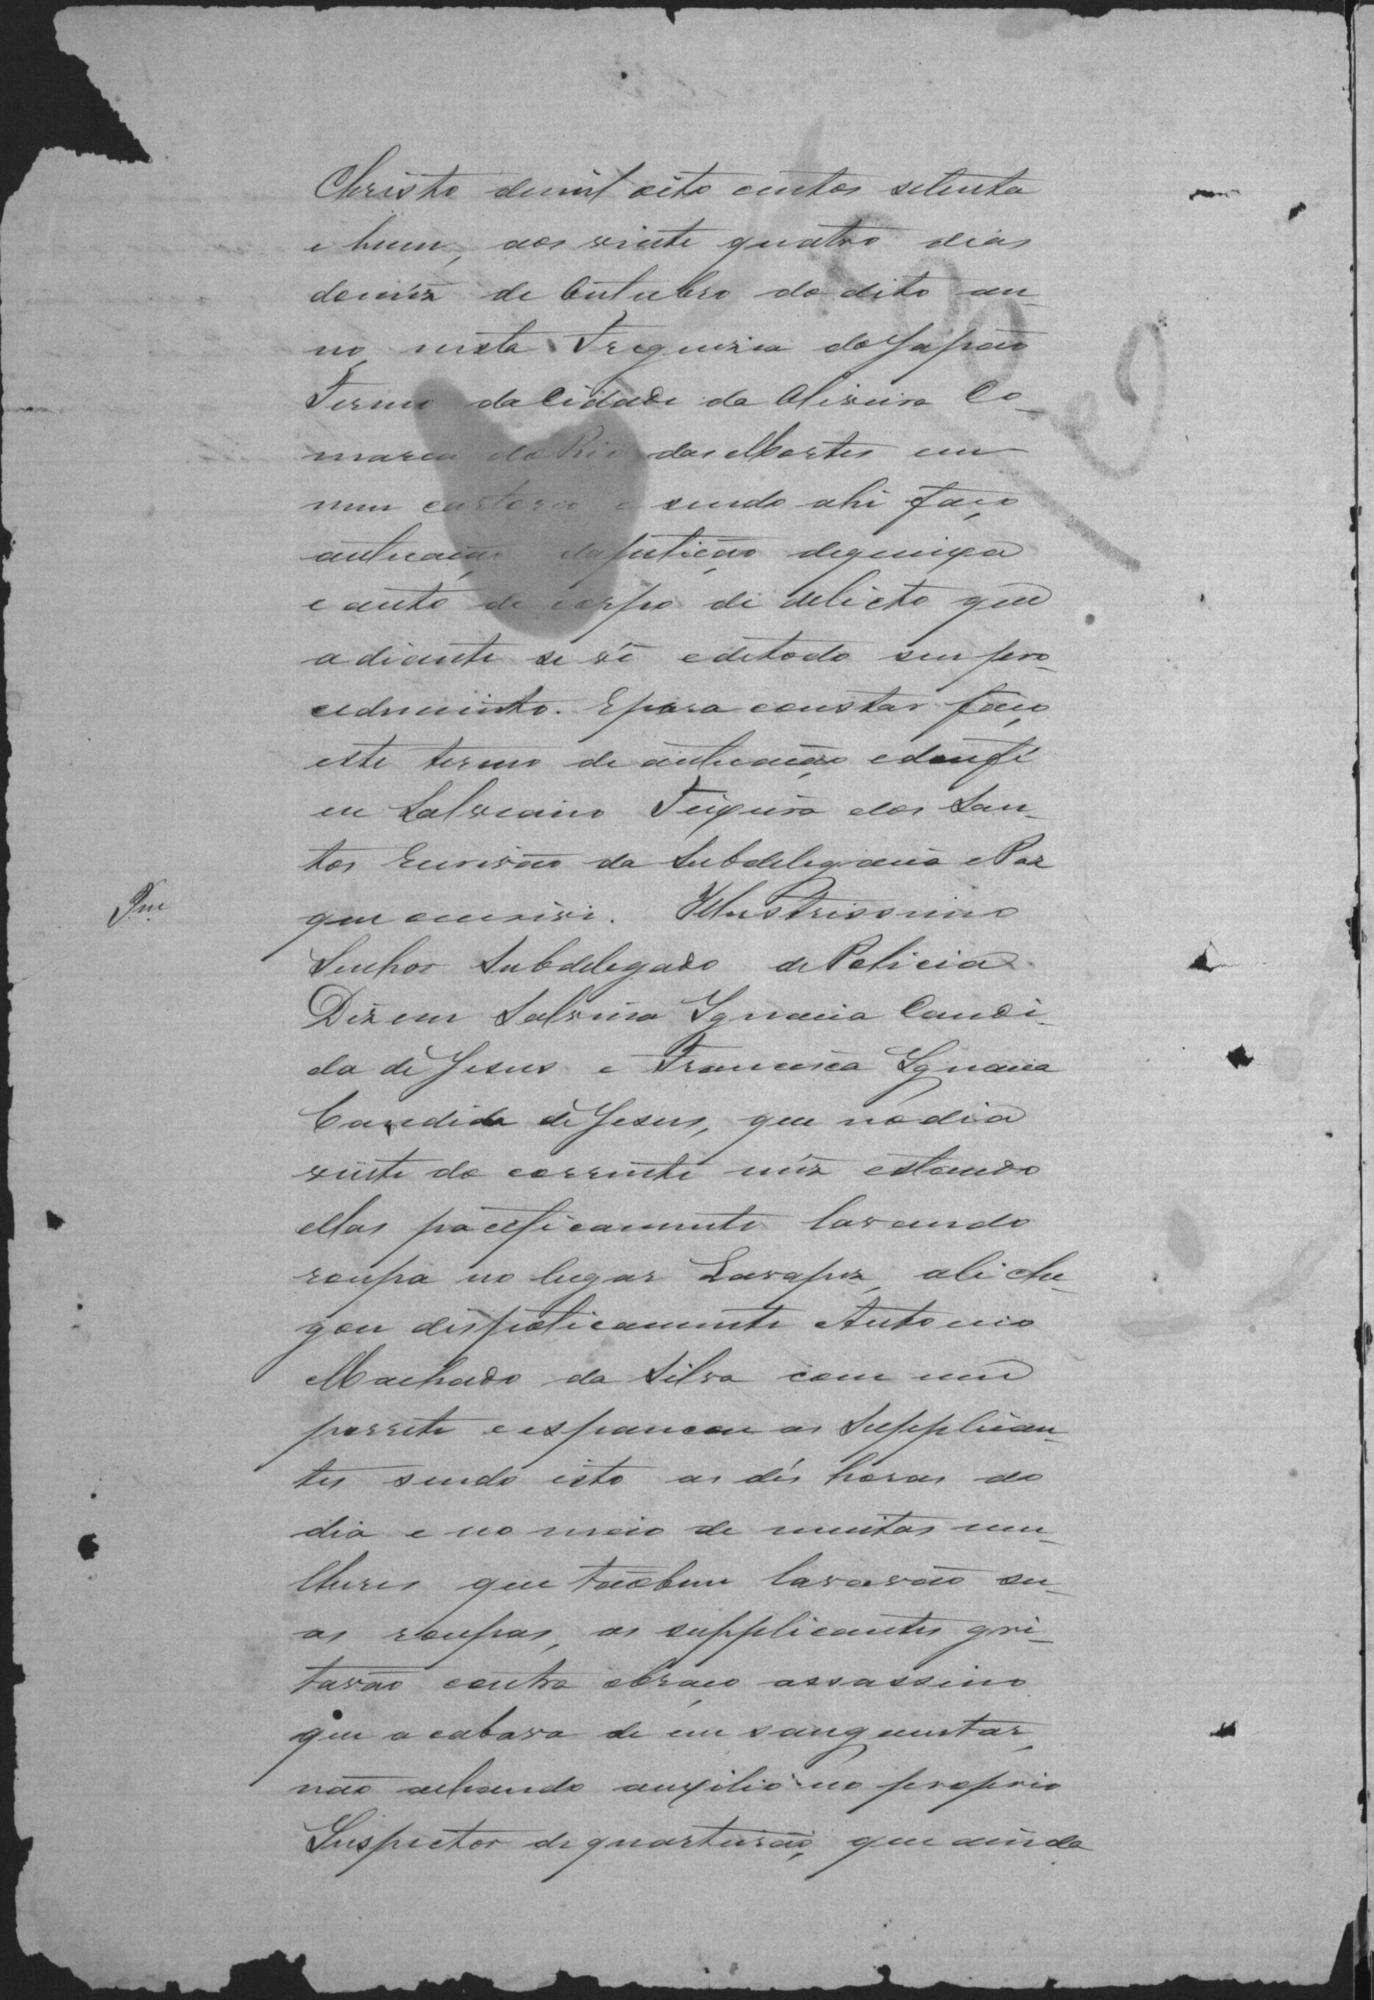 Christo demil oito centos setenta
e hum, aos vinte quatro dias
domêz de Outubro do dito an-
no, nesta Freguezia do Japão
Termo da Cidade da Oliveira Co-
marca do Rio das Mortes em
meu cartorio e sendo ahi faço
autuação dapetição dequeixa
e auto de corpo de delicto que
adiante se vê edetodo seu pro-
cedimento. Epara constar faço
este termo de autuação edoufé
eu Salviano Teixeira dos San-
tos Escrivão da Subdelegacia e Paz
que oescrivi. Illustrissimo
Senhor Subdelegado de Policia
Dizem Salvina Ignacia Candi-
da de Jesus e Francisca Ignacia
Candida de Jesus, que nodia
vinte do corrente mêz estando
ellas pacificamente lavando
roupa no lugar Lavapez, ali che-
gou dispoticamente Antonio
Machado da Silva com um
porrete e espancou as Supplican-
tes sendo isto as dés horas do
dia e no meio de muitas mu-
lheres que tãobem lavavão su-
as roupas, as supplicantes gri-
tarão contra obraço assassino
que acabava de em sanguentar,
não achando auxilio no proprio
Inspector dequarteirão, que ainda